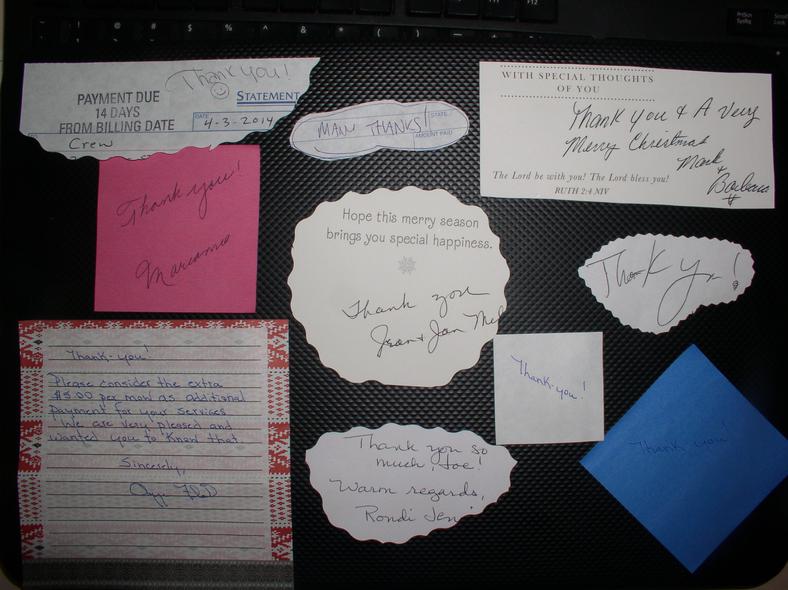 Thank you!
PAYMENT DUE
14 DAYS
FROM BILLING DATE
STATEMENT
DATE
4-3-2014
Crew
MANY THANKS!
STATE
AMOUNT PAID
WITH SPECIAL THOUGHTS
OF YOU
Thank you & A Very
Merry Christmas
Mark
+
Barbara
The Lord be with you! The Lord bless you!
RUTH 2:4 NIV
Thank you!
Marianne
Hope this merry season
brings you special happiness.
Thank you
Jean + Jan
Thank you!
Thank-you!
Please consider the extra
$5.00 per mow as additional
payment for your services
We are very pleased and
wanted you to know that.
Sincerely,
Thank-you!
Thank you
Thank you so
much, Joe!
Warm regards,
Rondi Jen